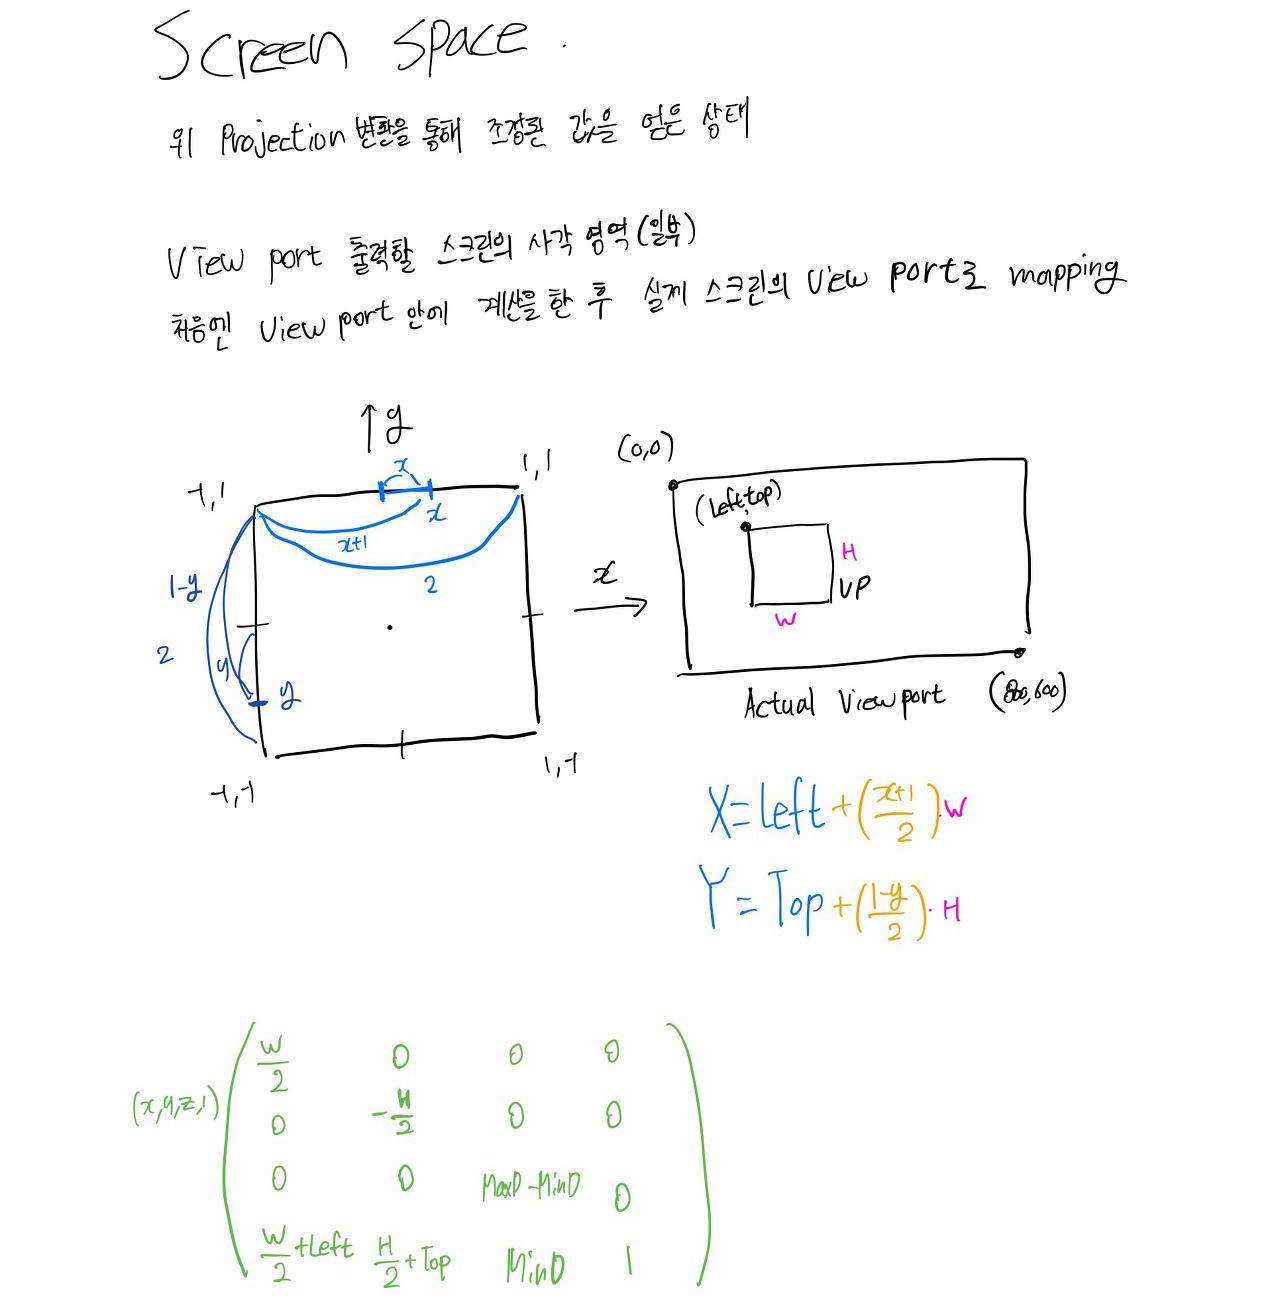 Screen space.
위 Projection 변환을 통해 조정된 값을 얻은 상태
View port 출력할 스크린의 사각 영역(일부)
처음엔 View port 안에 계산을 한 후 실제 스크린의 View port로 mapping
↑y
x
-1,1
1,1
x
x+1
2
1-y
2
y
y
-1,-1
1,-1
x
(0,0)
(Left,top)
H
VP
W
Actual Viewport (800,600)
X=Left+(x+1/2)·W
Y=Top+(1-y/2)·H
W/2 0 0 0
(x,y,z,1)
0 -H/2 0 0
0 0 MaxD-MinD 0
W/2+Left H/2+Top MinD 1